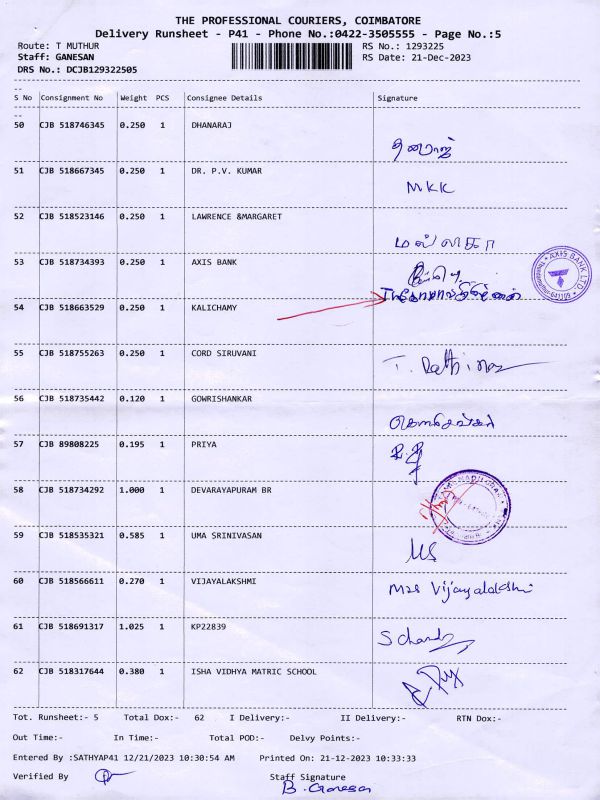 THE PROFESSIONAL COURIERS, COIMBATORE
Delivery Runsheet - P41 - Phone No.:0422-3505555 - Page No.:5
Route: T MUTHUR RS No.: 1293225
Staff: GANESAN RS Date: 21-Dec-2023
DRS No.: DCJB129322505
S No Consignment No Weight PCS Consignee Details Signature
50 CJB 518746345 0.250 1 DHANARAJ
தனராஜ்
51 CJB 518667345 0.250 1 DR. P.V. KUMAR
MKK
52 CJB 518523146 0.250 1 LAWRENCE &MARGARET
மல்லிகா
53 CJB 518734393 0.250 1 AXIS BANK
AXIS BANK LTD.
54 CJB 518663529 0.250 1 KALICHAMY
55 CJB 518755263 0.250 1 CORD SIRUVANI
56 CJB 518735442 0.120 1 GOWRISHANKAR
57 CJB 89808225 0.195 1 PRIYA
58 CJB 518734292 1.000 1 DEVARAYAPURAM BR
59 CJB 518535321 0.585 1 UMA SRINIVASAN
US
60 CJB 518566611 0.270 1 VIJAYALAKSHMI
Mrs Vijayalakshmi
61 CJB 518691317 1.025 1 KP22839
62 CJB 518317644 0.380 1 ISHA VIDHYA MATRIC SCHOOL
Tot. Runsheet:- 5 Total Dox:- 62 I Delivery:- II Delivery:- RTN Dox:-
Out Time:- In Time:- Total POD:- Delvy Points:-
Entered By :SATHYAP41 12/21/2023 10:30:54 AM Printed On: 21-12-2023 10:33:33
Verified By Staff Signature
B. Ganesan